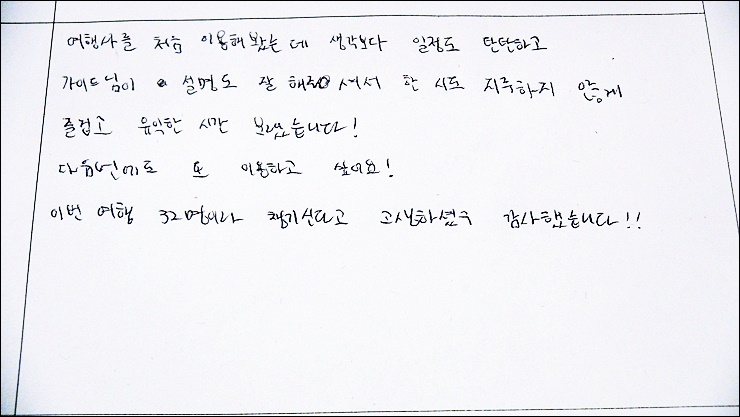 여행사를 처음 이용해봤는데 생각보다 일정도 탄탄하고
가이드님이 설명도 잘 해주셔서 한 시도 지루하지 않게
즐겁고 유익한 시간 보냈습니다!
다음번에도 또 이용하고 싶어요!
이번 여행 32명이나 챙기신다고 고생하셨구 감사했습니다!!